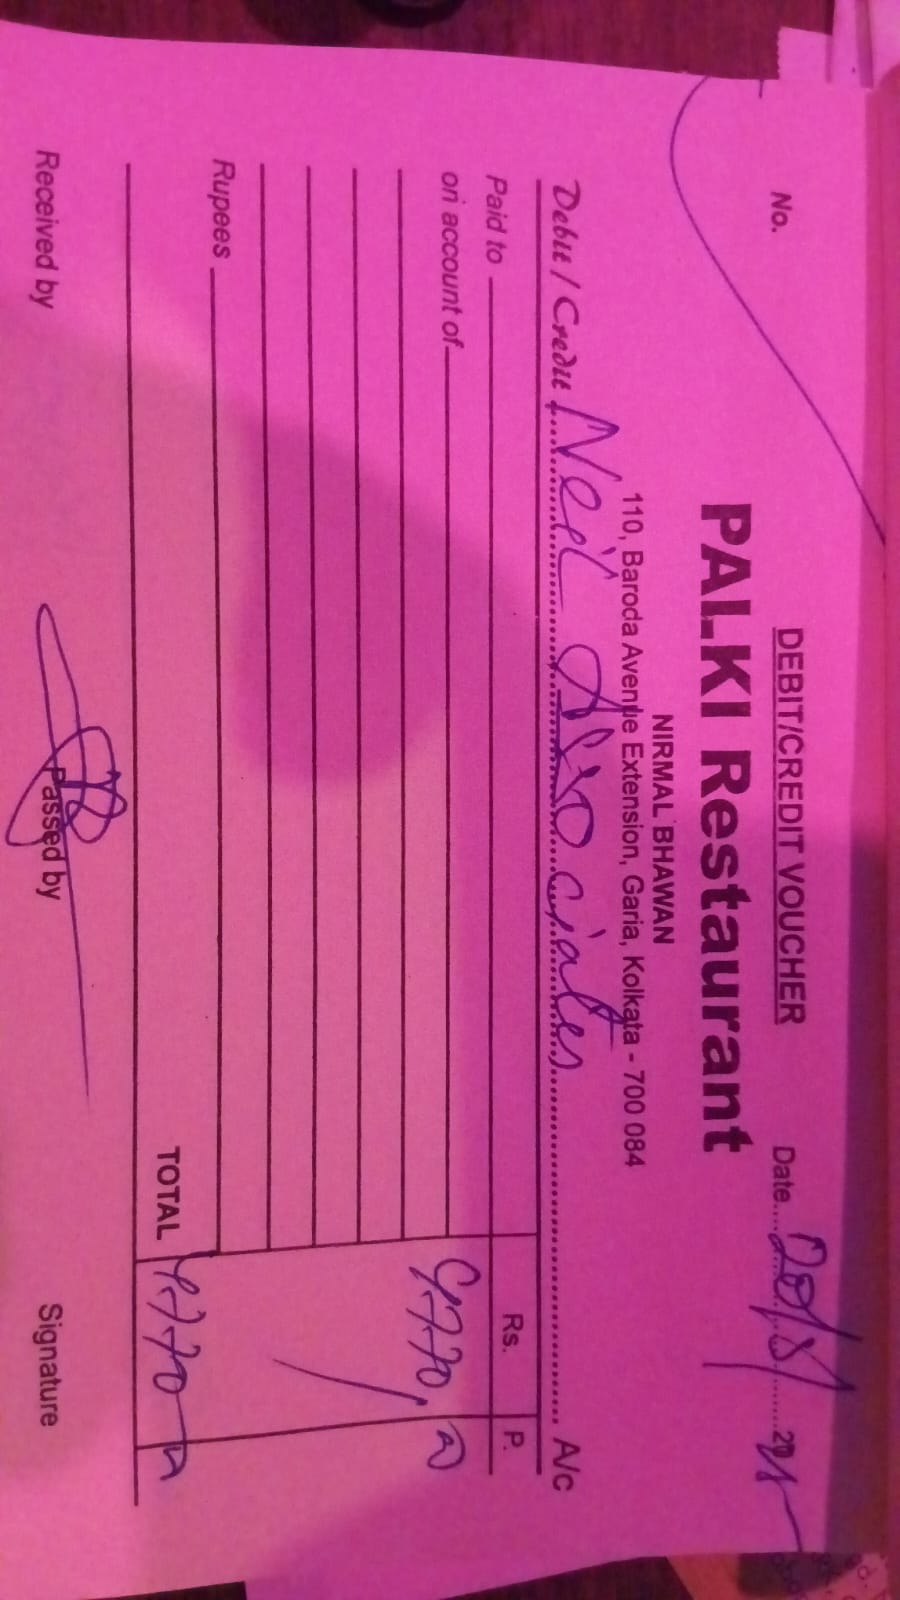 DEBIT/CREDIT VOUCHER
No.
Date
PALKI Restaurant
NIRMAL BHAWAN
110, Baroda Avenue Extension, Garia, Kolkata - 700 084
Debit / Credit Neil Associates A/c
Paid to
Rs. P.
on account of
Rupees
TOTAL
Received by Passed by Signature